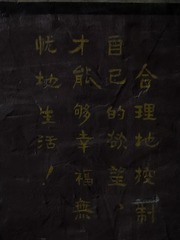 合理地控制
自己的欲望，
才能够幸福無
忧地生活！